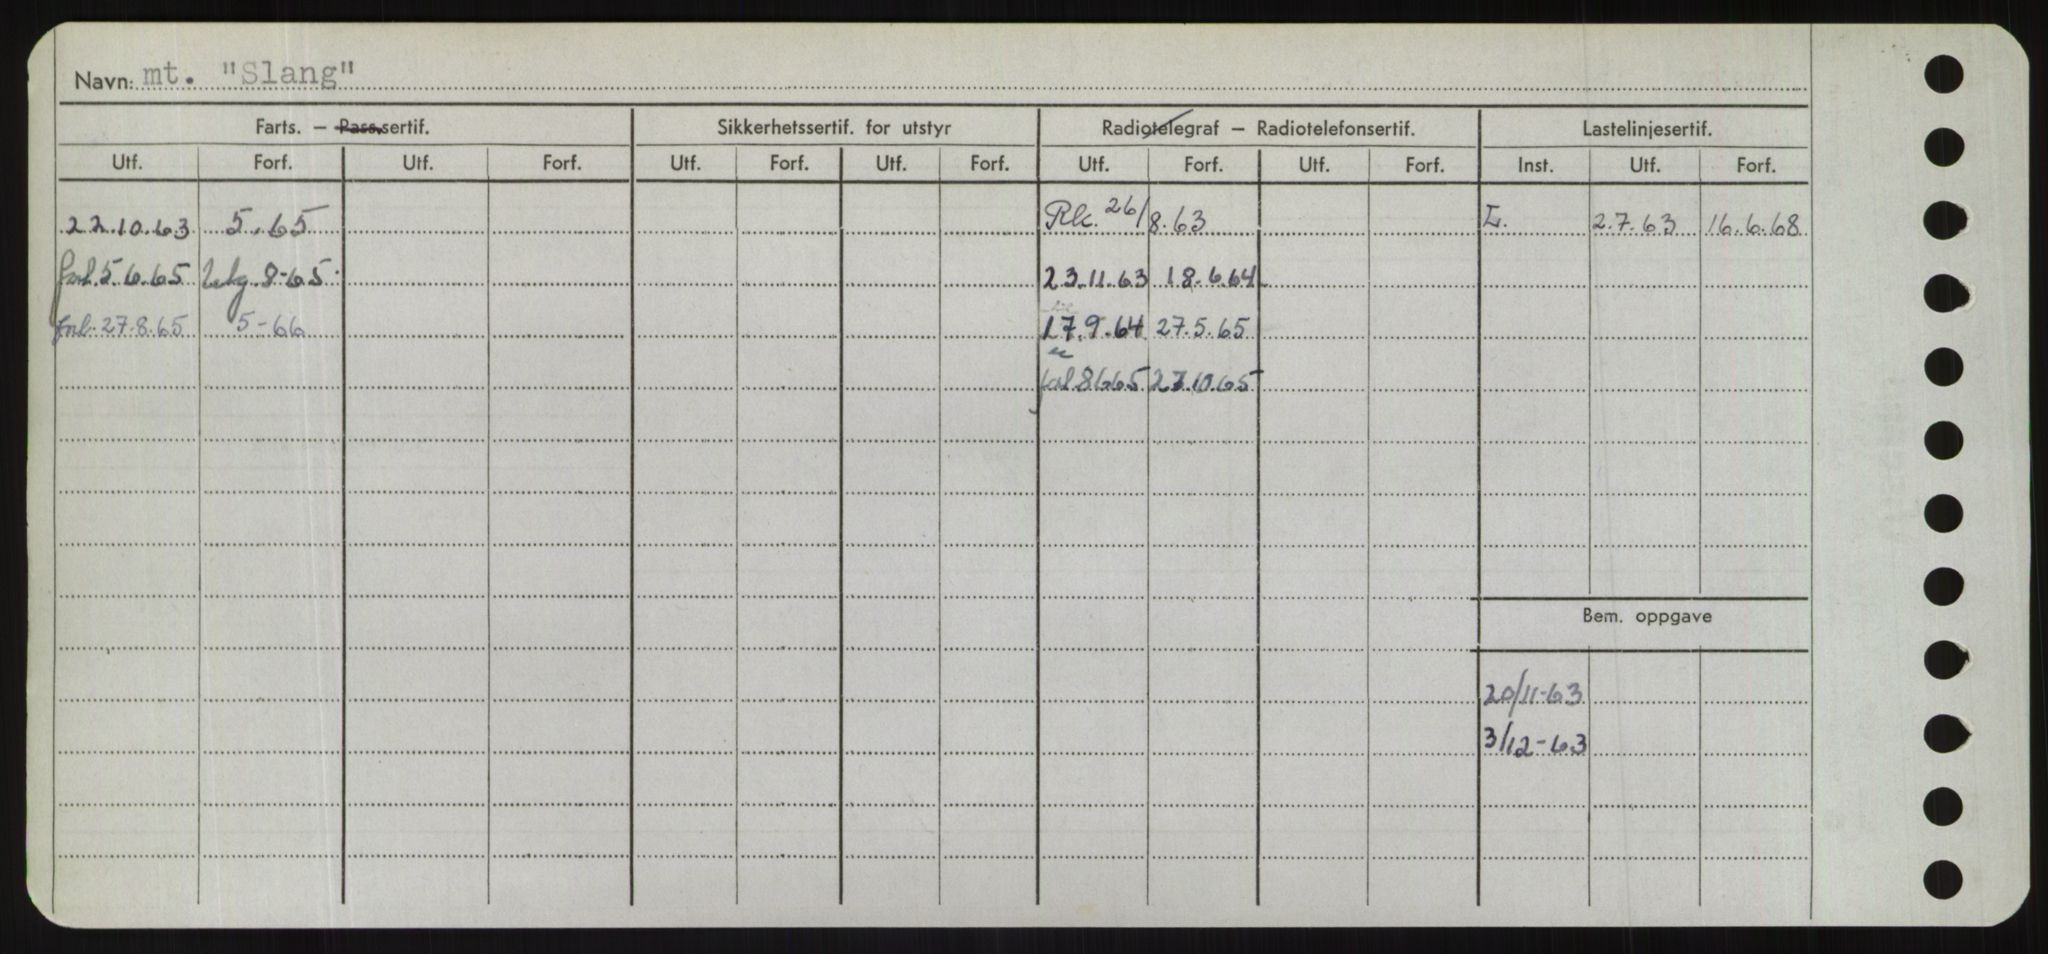 Navn: mt. "Slang"
Farts. – Pass.sertif. Sikkerhetssertif. for utstyr Radiotelegraf – Radiotelefonsertif. Lastelinjesertif.
Utf. Forf. Utf. Forf. Utf. Forf. Utf. Forf. Utf. Forf. Utf. Forf. Inst. Utf. Forf.
22.10.63 5.65 Rk. 26/8.63 L. 2.7.63 16.6.68
forl. 5.6.65 Utg. 8-65. 23.11.63 18.6.64
forl. 27.8.65 5-66 17.9.64 27.5.65
forl 8.6.65 27.10.65
Bem. oppgave
20/11-63
3/12-63